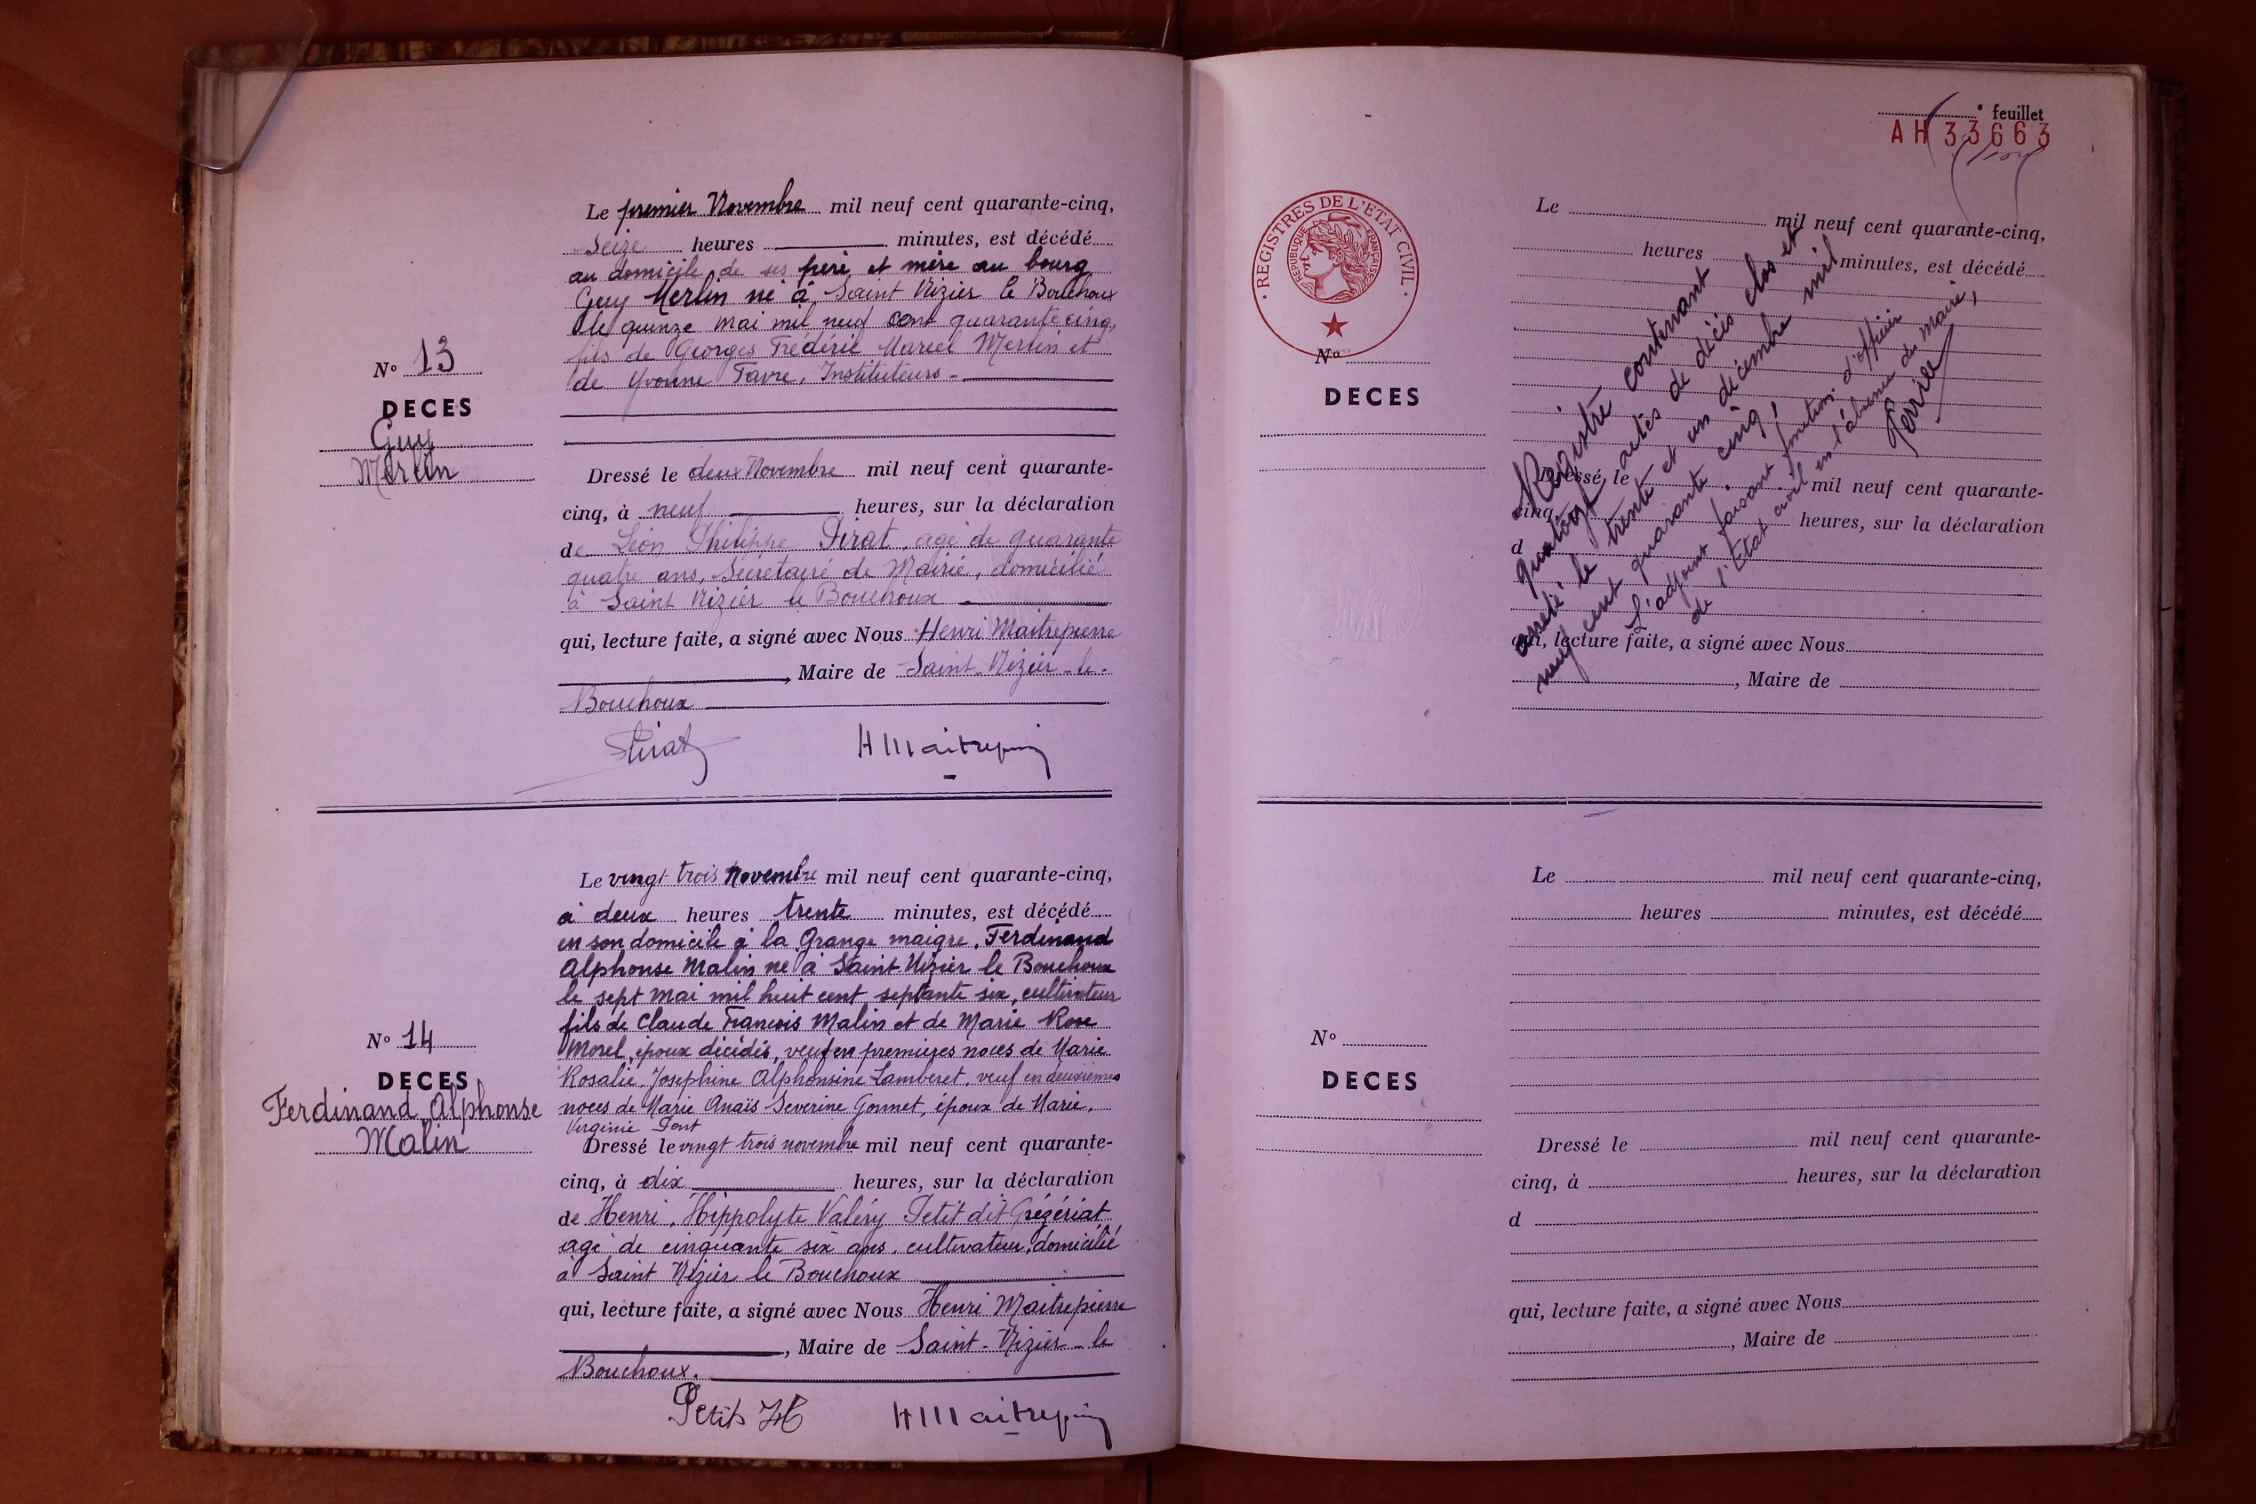 Le premier Novembre mil neuf cent quarante-cinq,
Seize heures minutes, est décédé
au domicile de ses père et mère au bourg
Guy Merlin né à Saint Nizier le Bouchoux
le quinze mai mil neuf cent quarante cinq,
fils de Georges Frédéric Marcel Merlin et
de Yvonne Favre, Instituteurs -
N° 13
DECES
Guy
Merlin
Dressé le deux Novembre mil neuf cent quarante-
cinq, à neuf heures, sur la déclaration
de Léon Philippe Pirat, agé de quarante
quatre ans, Secrétaire de Mairie, domicilié
à Saint Nizier le Bouchoux
qui, lecture faite, a signé avec Nous Henri Maitrepierre
, Maire de Saint-Nizier-le-
Bouchoux
Pirat HMaitrepierre
Le vingt trois Novembre mil neuf cent quarante-cinq,
à deux heures trente minutes, est décédé
en son domicile à la Grange maigre, Ferdinand
Alphonse Malin né à Saint-Nizier le Bouchoux
le sept mai mil huit cent septante six, cultivateur
fils de Claude François Malin et de Marie Rose
Morel, époux décédés, veuf en premières noces de Marie
Rosalie Josephine Alphonsine Lamberet, veuf en deuxiemes
noces de Marie Anaïs Severine Gonnet, époux de Marie
Virginie Font
N° 14
DECES
Ferdinand Alphonse
Malin
Dressé le vingt trois novembre mil neuf cent quarante-
cinq, à dix heures, sur la déclaration
de Henri Hippolyte Valéry Petit dit Grézériat
agé de cinquante six ans, cultivateur, domicilié
à Saint Nizier le Bouchoux
qui, lecture faite, a signé avec Nous Henri Maitrepierre
, Maire de Saint-Nizier-le
Bouchoux.
Petit HMaitrepierre
° feuillet
AH 33663
REGISTRES DE L'ETAT CIVIL
REPUBLIQUE FRANÇAISE
Le mil neuf cent quarante-cinq,
heures minutes, est décédé
N°
DECES
Dressé le mil neuf cent quarante-
cinq, heures, sur la déclaration
d
qui, lecture faite, a signé avec Nous
, Maire de
Registre contenant
quatorze actes de décès clos et
arrêté le trente et un décembre mil
neuf cent quarante cinq,
L'adjoint faisant fonction d'officier
de l'Etat civil en l'absence du maire,
Perrier
Le mil neuf cent quarante-cinq,
heures minutes, est décédé
N°
DECES
Dressé le mil neuf cent quarante-
cinq, à heures, sur la déclaration
d
qui, lecture faite, a signé avec Nous
, Maire de